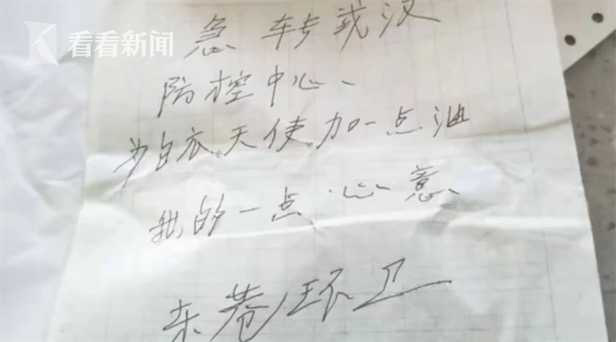 看看新闻
急 转武汉
防控中心、
为白衣天使加一点油
我的一点心意
东巷环卫